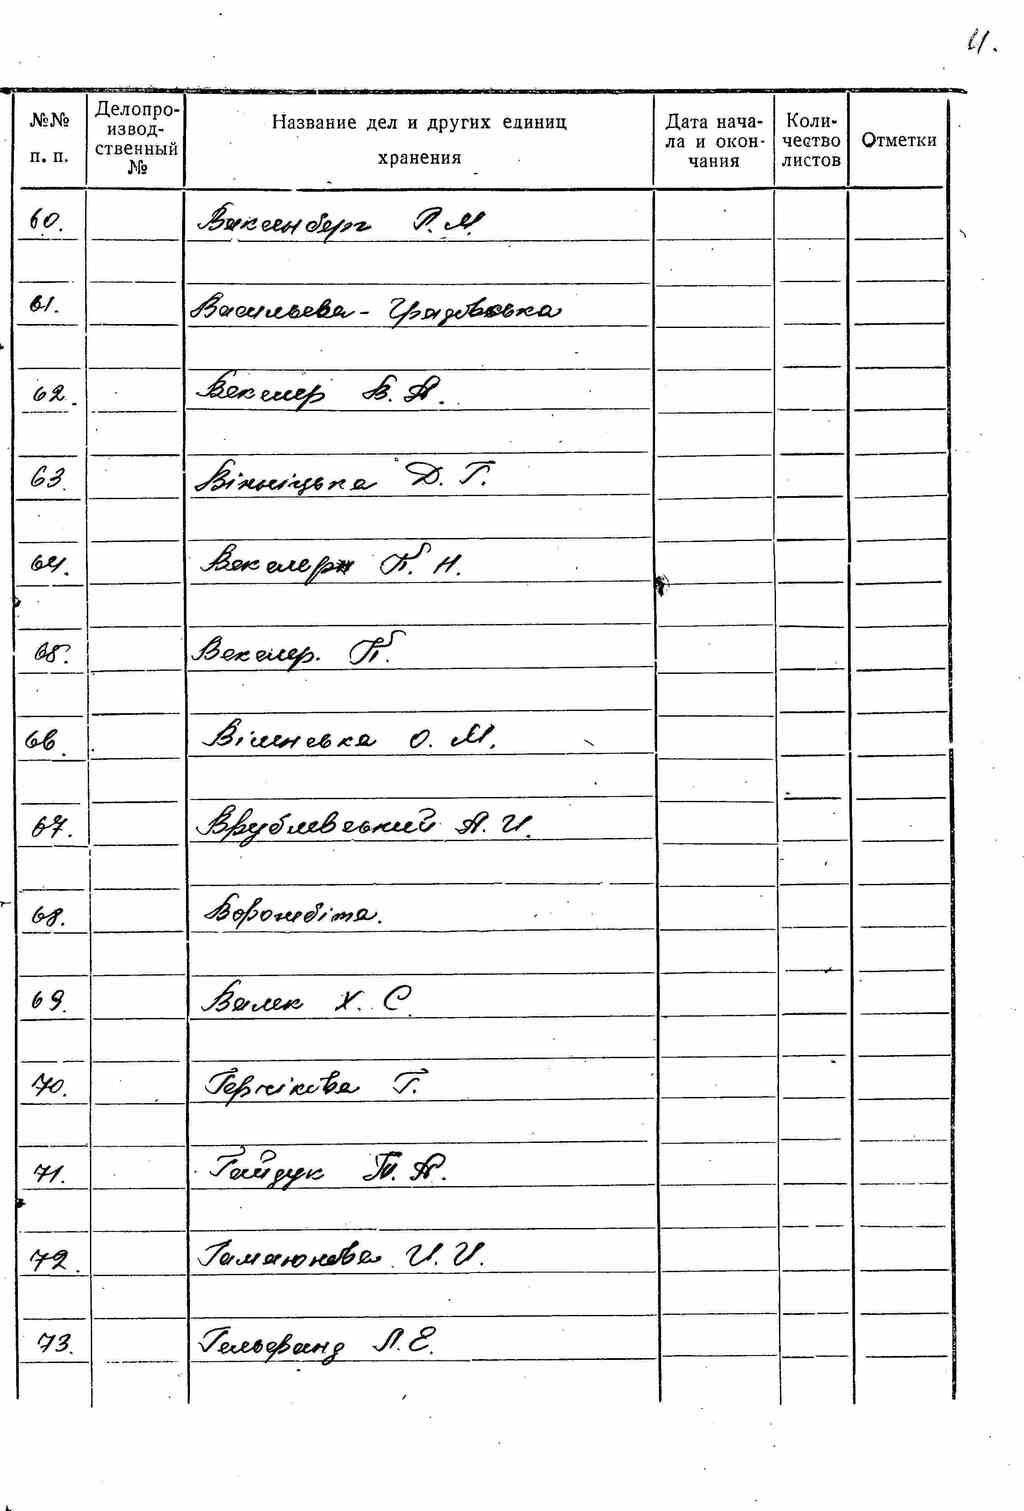 4.
№№ п. п.
Делопро-
извод-
ственный
№
Название дел и других единиц
хранения
Дата нача-
ла и окон-
чания
Коли-
чество
листов
Отметки
60. Ваксенберг Р. М.
61. Васильева - Грядовська
62. Векслер В. А.
63. Вінніцька Д. Г.
64. П. Н.
65. Векслер. П.
66. Віленська О. М.
67. Врублевський А. И.
68. Ворожбіта.
69. Валек Х. С.
70. Г.
71. Гайдук Т. А.
72. Гамаюнова И. И.
73. Гельфанд Л. Е.